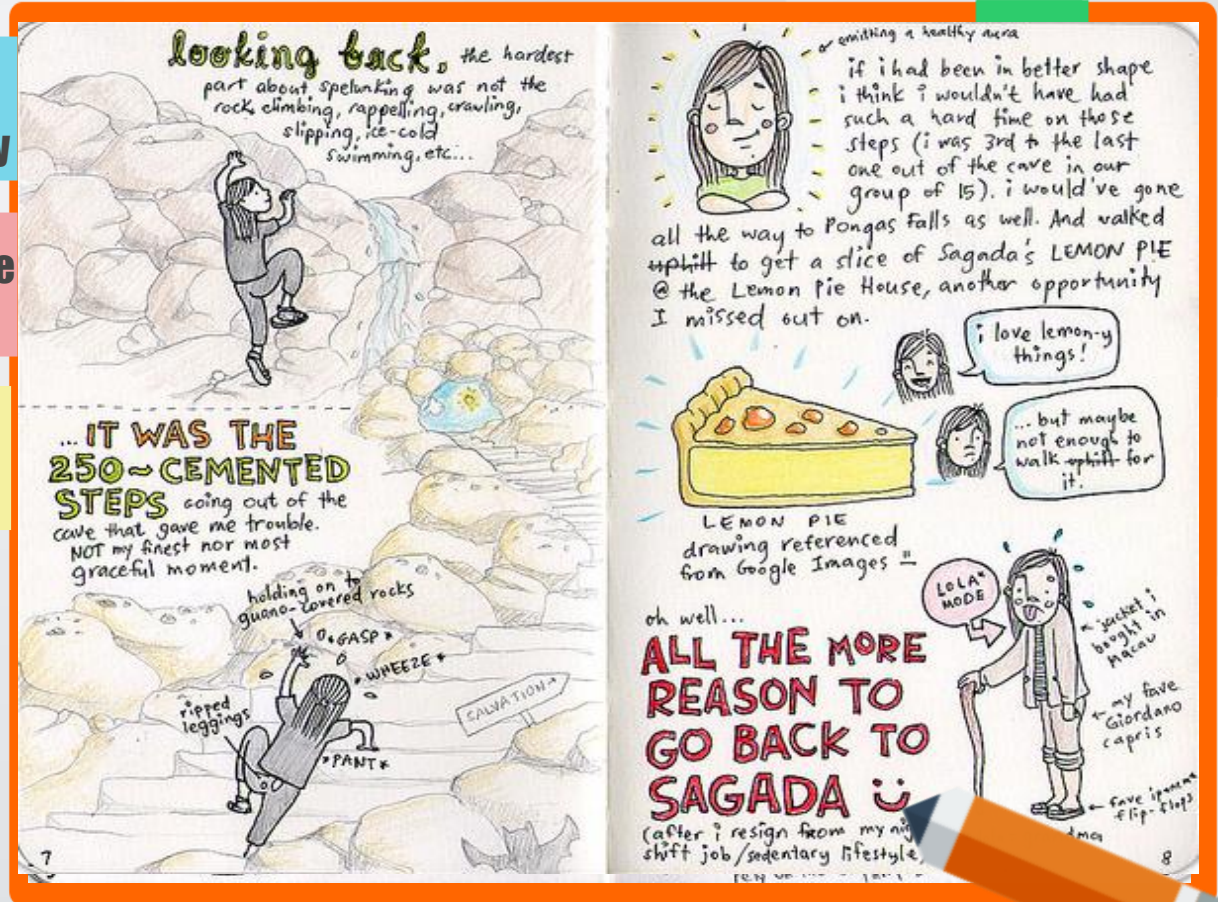 looking back, the hardest
part about spelunking was not the
rock climbing, rappelling, crawling,
slipping, ice-cold
swimming, etc...
...IT WAS THE
250~CEMENTED
STEPS going out of the
cave that gave me trouble.
NOT my finest nor most
graceful moment.
holding on to
guano-covered rocks
*GASP*
*WHEEZE*
ripped
leggings
SALVATION→
*PANT*
7
emitting a healthy aura
if i had been in better shape
i think i wouldn't have had
such a hard time on those
steps (i was 3rd to the last
one out of the cave in our
group of 15). i would've gone
all the way to Pongas Falls as well. And walked
uphill to get a slice of Sagada's LEMON PIE
@ the Lemon Pie House, another opportunity
I missed out on.
i love lemon-y
things!
... but maybe
not enough to
walk uphill for
it.
LEMON PIE
drawing referenced
from Google Images =
LOLA*
MODE
jacket i
bought in
Macau
my fave
Giordano
capris
fave ipanema
flip-flops
oh well...
ALL THE MORE
REASON TO
GO BACK TO
SAGADA
(after i resign from my
shift job/sedentary lifestyle)
8